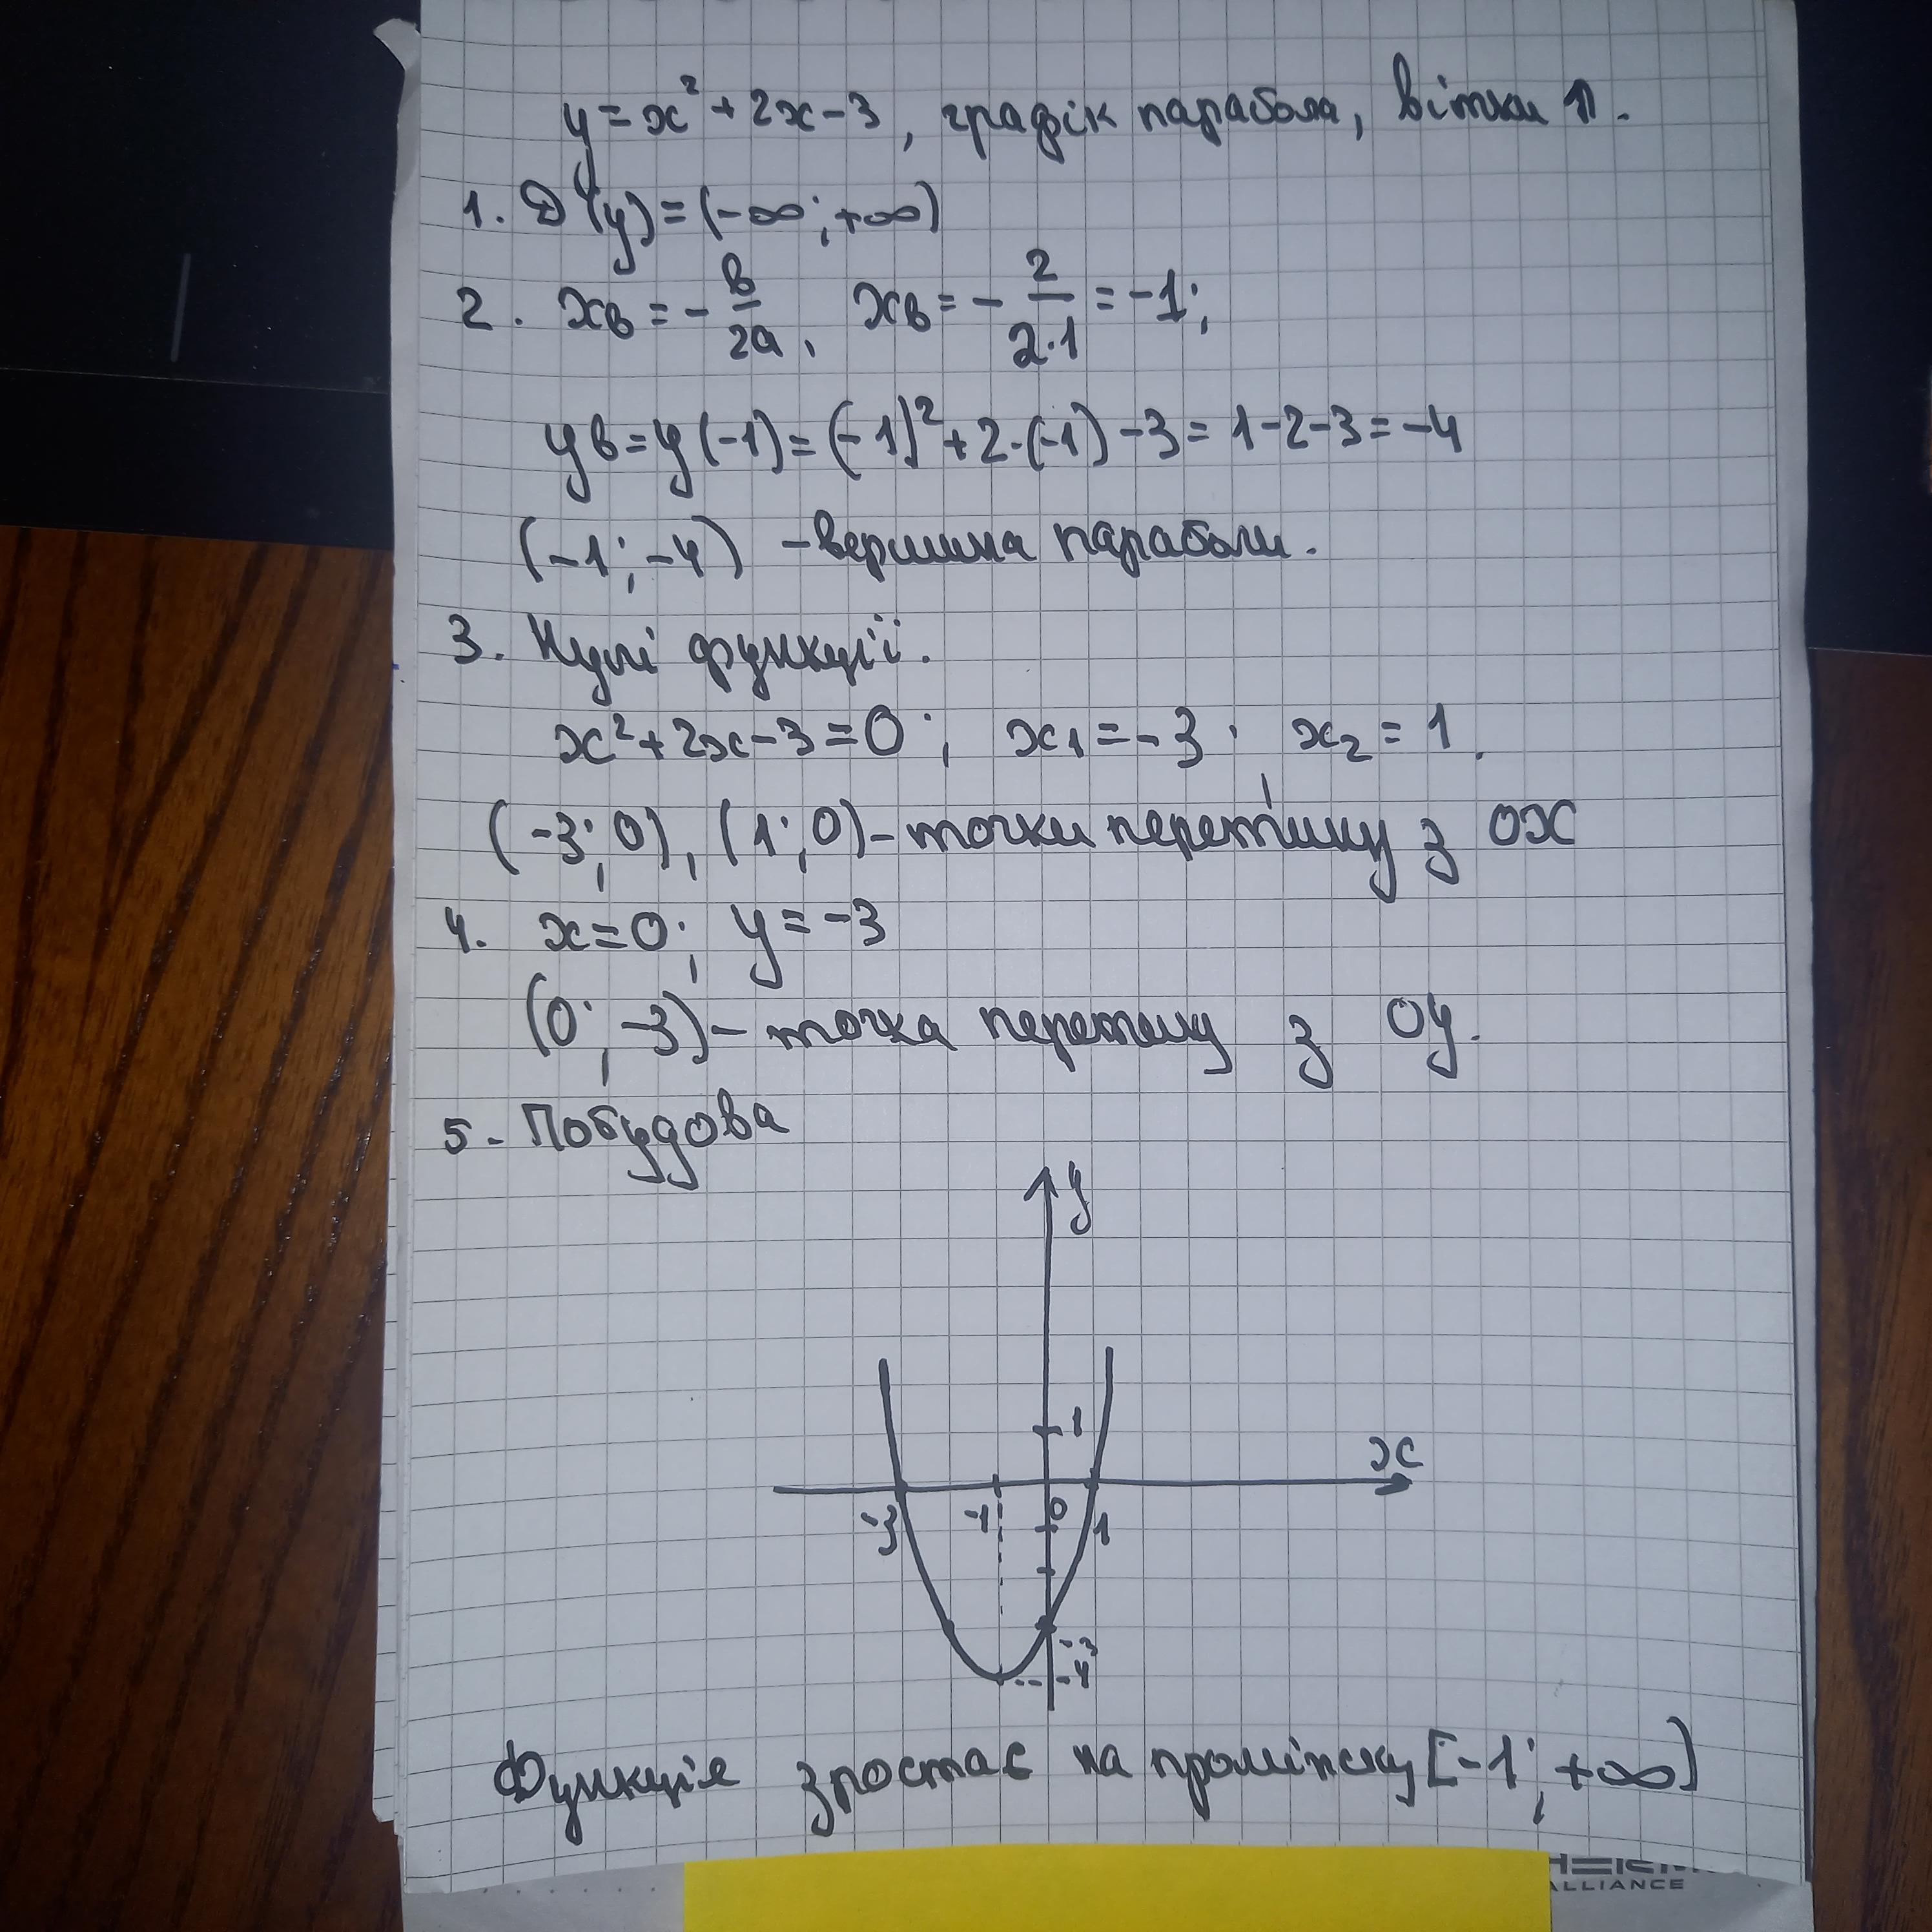 y = x² + 2x - 3, графік парабола, вітки ⇑.
1. D(y) = (-∞; +∞)
2. xв = - в/2a, xв = - 2/2·1 = -1;
yв = y(-1) = (-1)² + 2·(-1) - 3 = 1 - 2 - 3 = -4
(-1; -4) - вершина параболи.
3. Нулі функції.
x² + 2x - 3 = 0; x₁ = -3; x₂ = 1.
(-3; 0), (1; 0) - точки перетину з OX
4. x = 0; y = -3
(0; -3) - точка перетину з OY.
5. Побудова
y
1
x
-3 -1 0 1
-3
-4
Функція зростає на проміжку [-1; +∞)
ALLIANCE